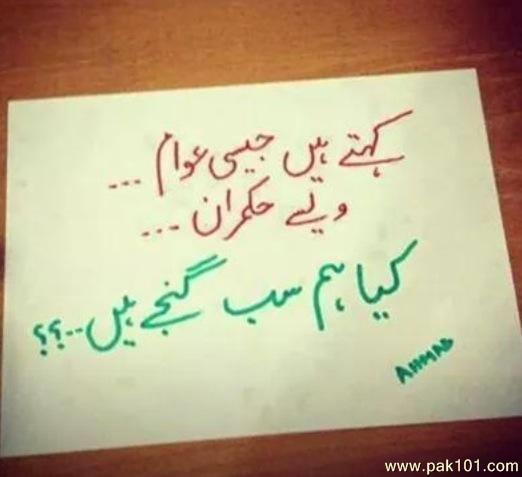 کہتے ہیں جیسی عوام ...
ویسے حکمران ...
کیا ہم سب گنجے ہیں..؟؟
AHMAD
www.pak101.com